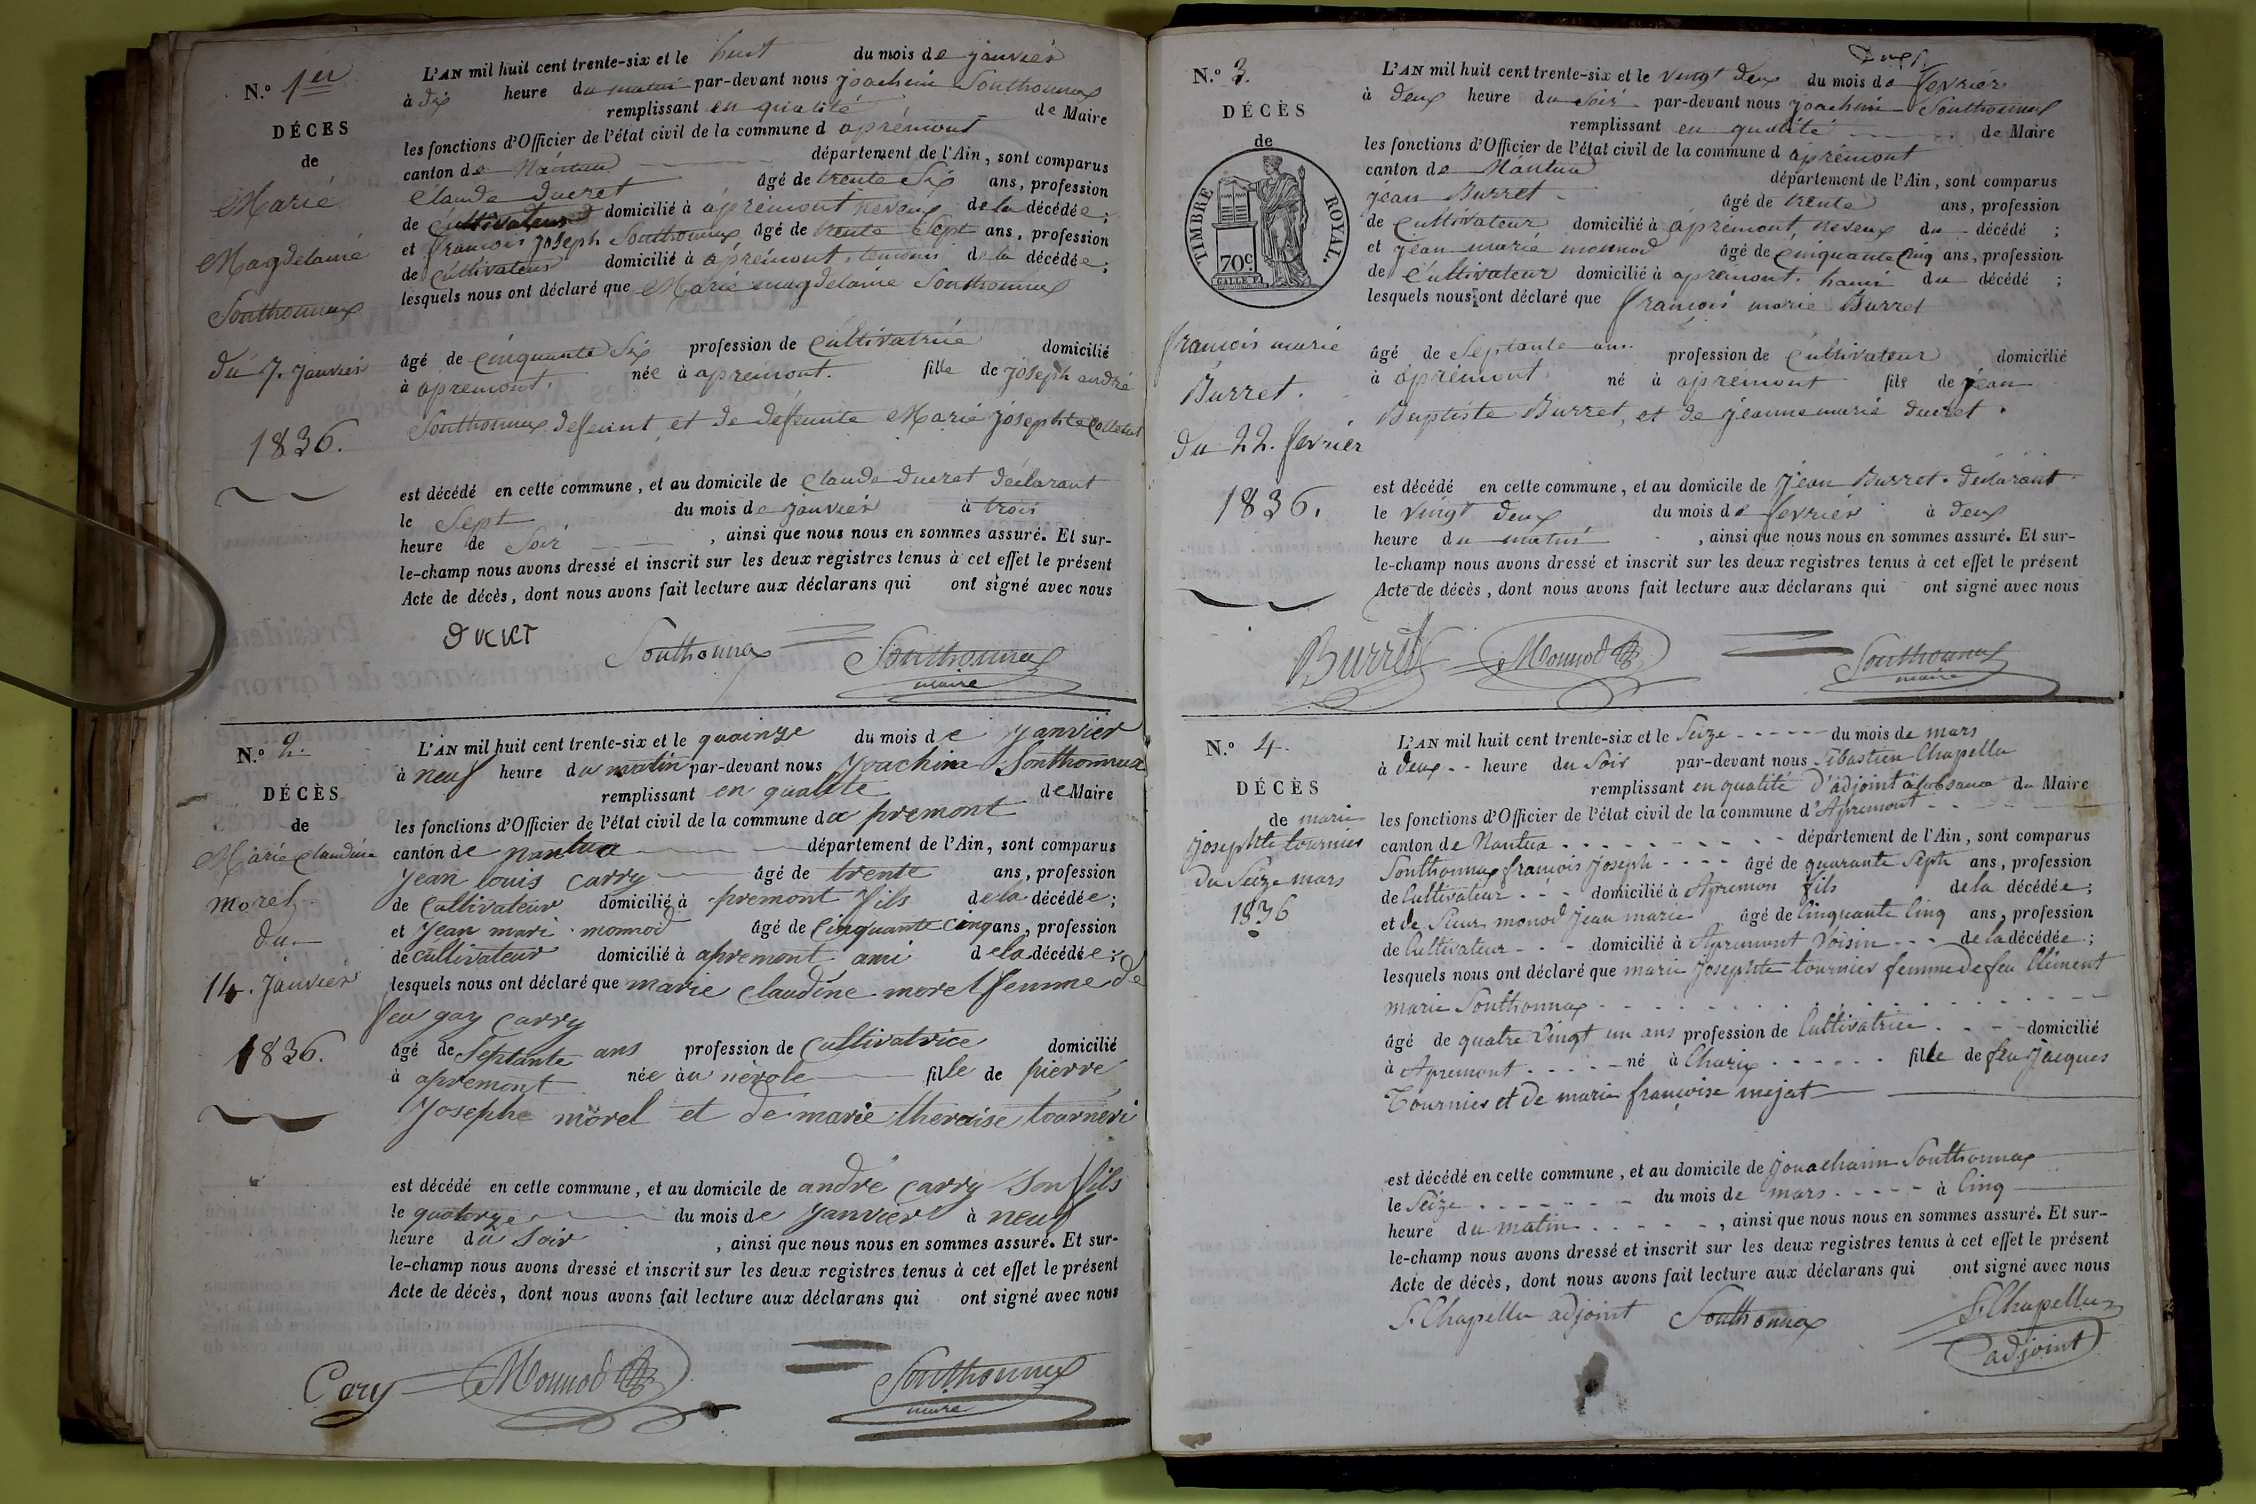 N.º 1er
DÉCES
de
Marie
Magdelaine
Southonnax
du 7. janvier
1836.
L'AN mil huit cent trente-six et le huit du mois de janvier
à dix heure du matin par-devant nous joachim Southonnax
remplissant en qualité de Maire
les fonctions d'Officier de l'état civil de la commune d apremont
canton de Nantua département de l'Ain, sont comparus
Claude ducret âgé de trente Six ans, profession
de Cultivateur domicilié à apremont neveux de la décédée;
et françois joseph Southonnax âgé de trente Sept ans, profession
de Cultivateur domicilié à apremont, temoins de la décédée;
lesquels nous ont déclaré que Marie magdelaine Southonnax
âgé de Cinquante Six profession de Cultivatrice domicilié
à apremont. née à apremont. fille de joseph andré
Southonnax deffunt, et de deffunte Marie josephte
est décédé en cette commune, et au domicile de Claude ducret déclarant
le Sept du mois de janvier à trois
heure de Soir, ainsi que nous nous en sommes assuré. Et sur-
le-champ nous avons dressé et inscrit sur les deux registres tenus à cet effet le présent
Acte de décès, dont nous avons fait lecture aux déclarans qui ont signé avec nous
DUCRET Southonnax Southonnax
maire
N.º 2.
DÉCÈS
de
Marie Claudine
morel
du
14. janvier
1836.
L'AN mil huit cent trente-six et le quainze du mois de janvier
à neuf heure du matin par-devant nous joachim Southonnax
remplissant en qualite de Maire
les fonctions d'Officier de l'état civil de la commune da premont
canton de nantua département de l'Ain, sont comparus
jean louis carry âgé de trente ans, profession
de Cultivateur domicilié à premont fils de la décédée;
et jean mari monnod âgé de Cinquante cinq ans, profession
de cultivateur domicilié à apremont ami de la décédée;
lesquels nous ont déclaré que marie claudine morel femme de
feu gay carry
âgé de Septante ans profession de Cultivatrice domicilié
à apremont née àu nerole fille de pierre
josephe morel et de marie theraise tourneri
est décédé en cette commune, et au domicile de andré carry son fils
le quatorze du mois de janvier à neuf
heure du Soir, ainsi que nous nous en sommes assuré. Et sur-
le-champ nous avons dressé et inscrit sur les deux registres tenus à cet effet le présent
Acte de décès, dont nous avons fait lecture aux déclarans qui ont signé avec nous
Cary Monnod Southonnax
maire
N.º 3.
DÉCÈS
de
TIMBRE ROYAL.
70c
françois marie
Burret.
du 22. fevrier
1836.
L'AN mil huit cent trente-six et le vingt deux du mois de fevrier
à deux heure du Soir par-devant nous joachim Southonnax
remplissant en qualité de Maire
les fonctions d'Officier de l'état civil de la commune d apremont
canton de Nantua département de l'Ain, sont comparus
jean Burret âgé de trente ans, profession
de Cultivateur domicilié à apremont, neveux du décédé;
et jean marie monnod âgé de Cinquante Cinq ans, profession
de Cultivateur domicilié à apremont. du décédé;
lesquels nous ont déclaré que françois marie Burret
âgé de Septante ans. profession de Cultivateur domicilié
à apremont né à apremont fils de jean
Baptiste Burret, et de jeanne marie ducret.
est décédé en cette commune, et au domicile de jean Burret. déclarant
le vingt deux du mois de fevrier à deux
heure du matin, ainsi que nous nous en sommes assuré. Et sur-
le-champ nous avons dressé et inscrit sur les deux registres tenus à cet effet le présent
Acte de décès, dont nous avons fait lecture aux déclarans qui ont signé avec nous
Burret Monnod Southonnax
maire
N.º 4.
DÉCÈS
de marie
josephte tournier
du Seize mars
1836
L'AN mil huit cent trente-six et le Seize du mois de mars
à deux heure du Soir par-devant nous Sébastien Chapellu
remplissant en qualité d'adjoint a l'absance du Maire
les fonctions d'Officier de l'état civil de la commune d'Apremont
canton de Nantua département de l'Ain, sont comparus
Southonnax françois joseph âgé de quarante Septh ans, profession
de Cultivateur domicilié à Apremon fils de la décédée;
et de Sieur monod jean marie âgé de Cinquante Cinq ans, profession
de Cultivateur domicilié à Apremont voisin de la décédée;
lesquels nous ont déclaré que marie josephte tournier femme de feu Clément
marie Southonnax
âgé de quatre vingt un ans profession de Cultivatrice domicilié
à Apremont né à Charix fille de feu jacques
Tournier et de marie françoise mejat
est décédé en cette commune, et au domicile de jouachaim Southonnax
le Seize du mois de mars à Cinq
heure du matin, ainsi que nous nous en sommes assuré. Et sur-
le-champ nous avons dressé et inscrit sur les deux registres tenus à cet effet le présent
Acte de décès, dont nous avons fait lecture aux déclarans qui ont signé avec nous
S. Chapellu adjoint Southonnax S. Chapellu
adjoint